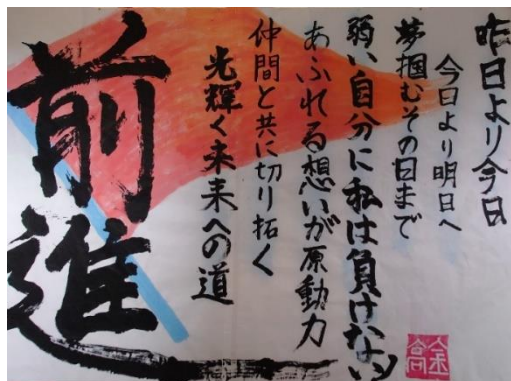 昨日より今日
今日より明日へ
夢掴むその日まで
弱い自分に私は負けない
あふれる想いが原動力
仲間と共に切り拓く
光輝く未来への道
前進